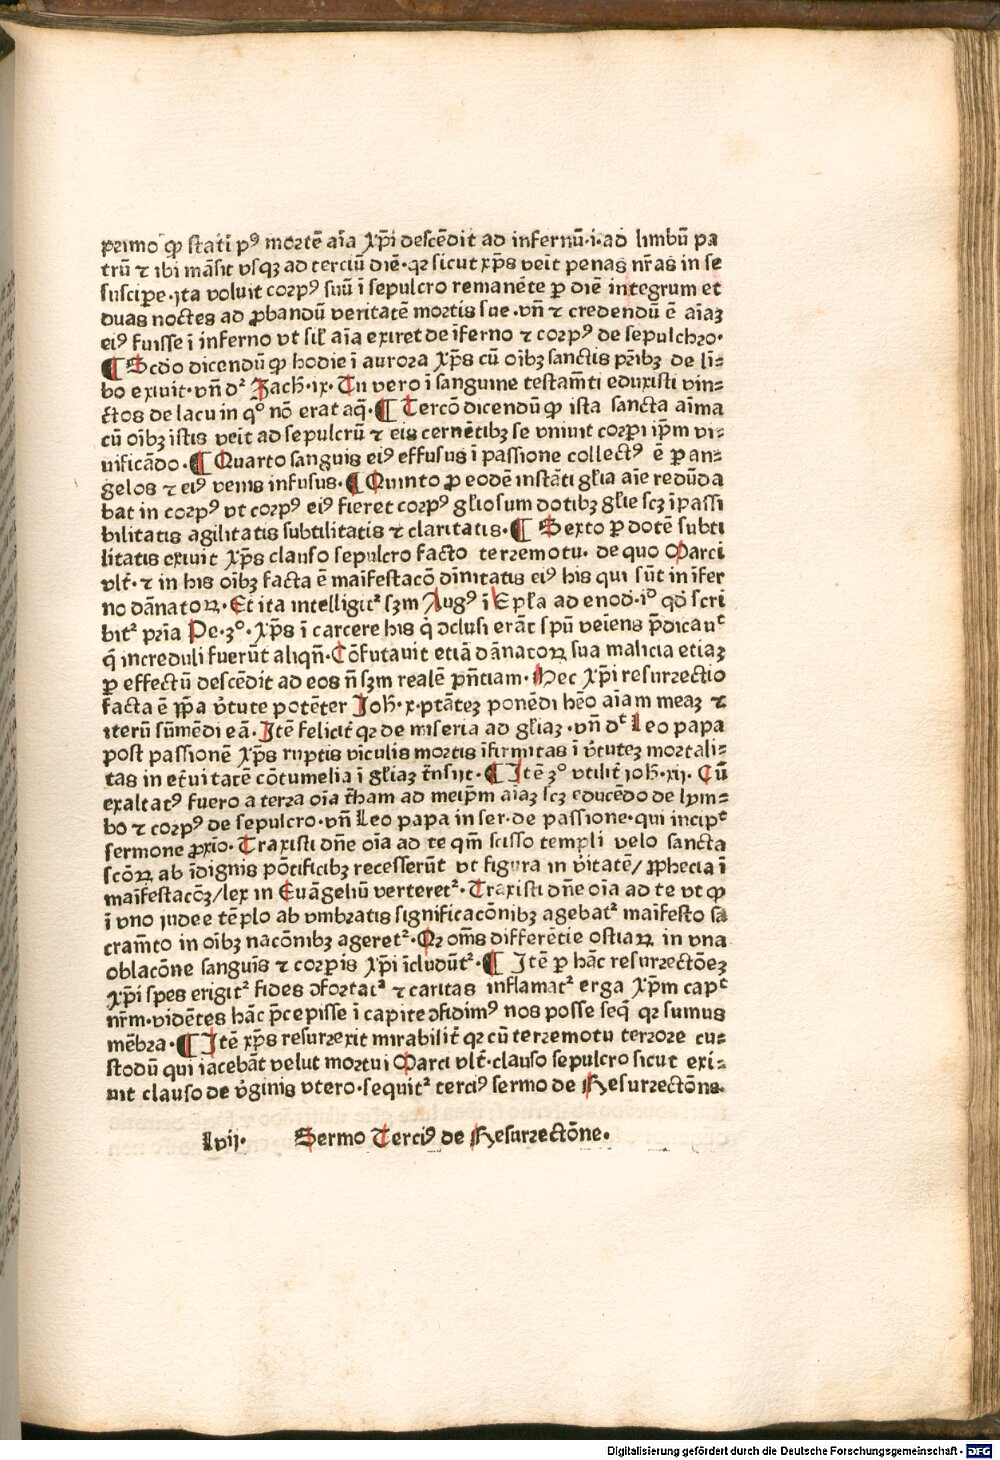 primo ꝙ stati᷑ pꝰ mortē aīa xp̄i descēdit ad infernū·i·ad limbū pa
trū ⁊ ibi māsit vsqꝫ ad terciū diē·qꝛ sicut xp̄s veīt penas nr̄as in se
suscipe·ita voluit corpꝰ suū ī sepulcro remanēte ꝑ diē integrum et
duas noctes ad ꝓbandū veritatē mortis sue·vñ ⁊ credendū ē aīaꝫ
eiꝰ fuisse ī inferno vt sił aīa exiret de īferno ⁊ corpꝰ de sepulchro·
¶ Scd̄o dicendū ꝙ hodie ī aurora xp̄s cū oībꝫ sanctis pr̄ibꝫ de li⸗
bo exiuit·vñ dꝛ Zach·ix·Tu vero ī sanguine testam̄ti eduxisti vin⸗
ctos de lacu in qͦ nō erat aq̄·¶ Tercō dicendū ꝙ ista sancta aīma
cū oībꝫ istis veīt ad sepulcrū ⁊ eis cernētibꝫ se vniuit corpi ip̄m vi⸗
uificādo·¶ Quarto sanguis eiꝰ effusus ī passione collectꝰ ē ꝑ an⸗
gelos ⁊ eiꝰ venis infusus·¶ Quinto ꝓ eodē instāti gl̄ia aīe redūda
bat in corpꝰ vt corpꝰ eiꝰ fieret corpꝰ gl̄iosum dotibꝫ gl̄ie scꝫ īpassi
bilitatis agilitatis subtilitatis ⁊ claritatis·¶ Sexto ꝑ dotē subti
litatis exiuit xp̄s clauso sepulcro facto terremotu· de quo Marci
vlt̄·⁊ in his oībꝫ facta ē maīfestacō dīuitatis eiꝰ his qui sūt in īfer
no dānatoꝝ·Et ita intelligitꝛ sꝫm Augꝰ ī Epl̄a ad enod·iͦ qd̄ scri
bitꝛ prīa Pe·3ͦ·xp̄s ī carcere his q̄ ꝯclusi erāt spū veīens p̄dicauͭ
q̄ increduli fuerūt aliqñ·Cōfutauit etiā dānatoꝝ sua malicia etiaꝫ
ꝑ effectū descēdit ad eos ñ sꝫm realē pn̄tiam·Hec xp̄i resurrectio
facta ē ꝓp̄a v̄tute potēter Joh·x·ptāteꝫ ponēdi hēo aīam meaꝫ ⁊
iterū sūmēdi eā·Itē felicit̄ qꝛ de miseria ad gl̄iaꝫ·vñ dͭ Leo papa
post passionē xp̄s ruptis vīculis mortis īfirmitas ī v̄tuteꝫ mortali⸗
tas in et̄uitatē cōtumelia ī gl̄iaꝫ t̄nsijt·¶ Itē 3ͦ vtilit̄ ioh·xij· Cū
exaltatꝰ fuero a terra oīa t̄ham ad meip̄m aīaꝫ scꝫ educēdo de lym⸗
bo ⁊ corpꝰ de sepulcro·vñ Leo papa in ser·de passione·qui incipͭ
sermone ꝓxīo·Traxisti dn̄e oīa ad te qm̄ scisso templi velo sancta
scōꝝ ab īdignis pōtificibꝫ recesserūt vt figura in v̄itatē/ ꝓphecia ī
maīfestacōꝫ/lex in Euāgeliū verteretꝛ·Traxisti dn̄e oīa ad te vt ꝙ
ī vno iudee tēplo ab vmbratis significacōnibꝫ agebatꝛ maīfesto sa
cram̄to in oībꝫ nacōnibꝫ ageretꝛ·Qꝛ om̄s differētie ostiaꝝ in vna
oblacōne sanguīs ⁊ corpis xp̄i īcludūtꝛ·¶ Itē ꝑ hāc resurrectōeꝫ
xp̄i spes erigitꝛ fides ꝯfortatꝛ ⁊ caritas inflamatꝛ erga xp̄m capͭ
nr̄m·vidētes hāc p̄cepisse ī capite ꝯfidimꝰ nos posse seq̄ qꝛ sumus
mēbra·¶ Itē xp̄s resurrexit mirabilit̄ qꝛ cū terremotu terrore cu⸗
stodū qui iacebāt velut mortui Marci vlt̄·clauso sepulcro sicut exi⸗
uit clauso de v̄ginis vtero·sequitꝛ terciꝰ sermo de Resurrectōne.
lvij· Sermo Terciꝰ de Resurrectōne.
Digitalisierung gefördert durch die Deutsche Forschungsgemeinschaft · DFG